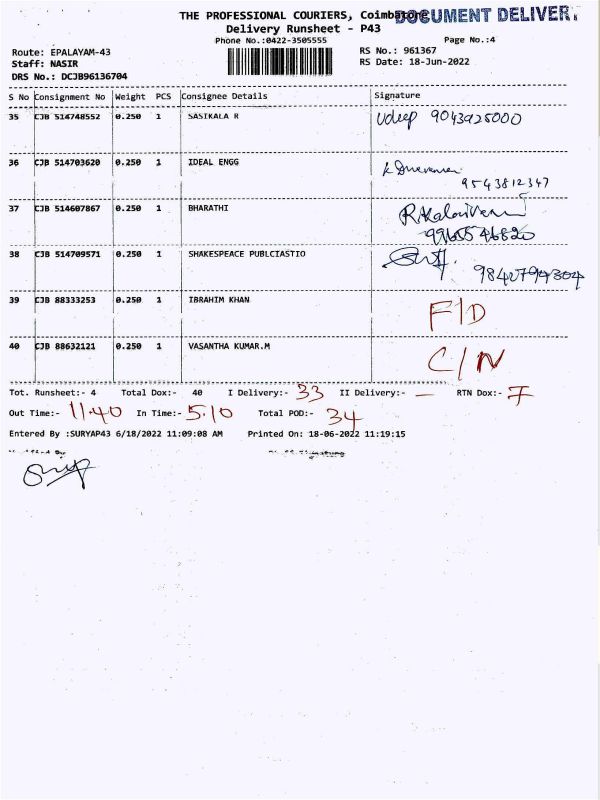 THE PROFESSIONAL COURIERS, Coimbatore
DOCUMENT DELIVER
Delivery Runsheet - P43
Phone No.:0422-3505555
Page No.:4
Route: EPALAYAM-43
RS No.: 961367
Staff: NASIR
RS Date: 18-Jun-2022
DRS No.: DCJB96136704
S No Consignment No Weight PCS Consignee Details Signature
35 CJB 514748552 0.250 1 SASIKALA R Udeep 9043925000
36 CJB 514703620 0.250 1 IDEAL ENGG
9543812347
37 CJB 514607867 0.250 1 BHARATHI R.Kalaivani
9965546820
38 CJB 514709571 0.250 1 SHAKESPEACE PUBLCIASTIO
9842794304
39 CJB 88333253 0.250 1 IBRAHIM KHAN F/D
40 CJB 88632121 0.250 1 VASANTHA KUMAR.M C/N
Tot. Runsheet:- 4 Total Dox:- 40 I Delivery:- 33 II Delivery:- — RTN Dox:- 7
Out Time:- 11.40 In Time:- 5.10 Total POD:- 34
Entered By :SURYAP43 6/18/2022 11:09:08 AM Printed On: 18-06-2022 11:19:15